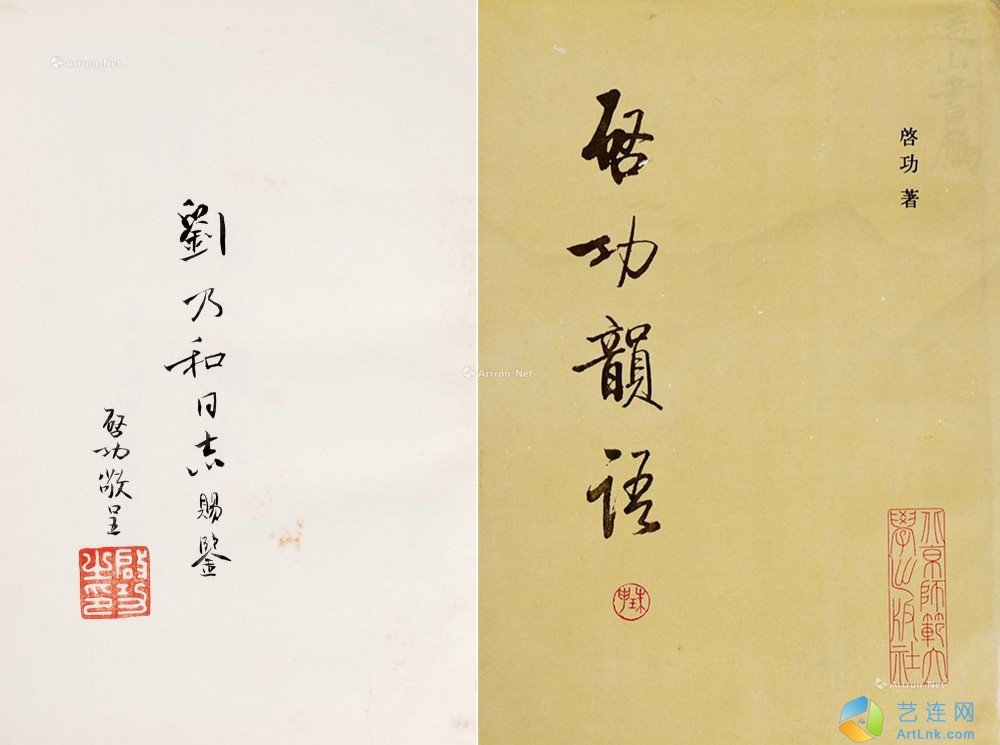 劉乃和同志賜鑒
啓功敬呈
啟功之印
啓功韻語
啓功著
北京師範大學出版社
Artron.Net
Artron.Net
Artron.Net
艺连网
ArtLnk.com